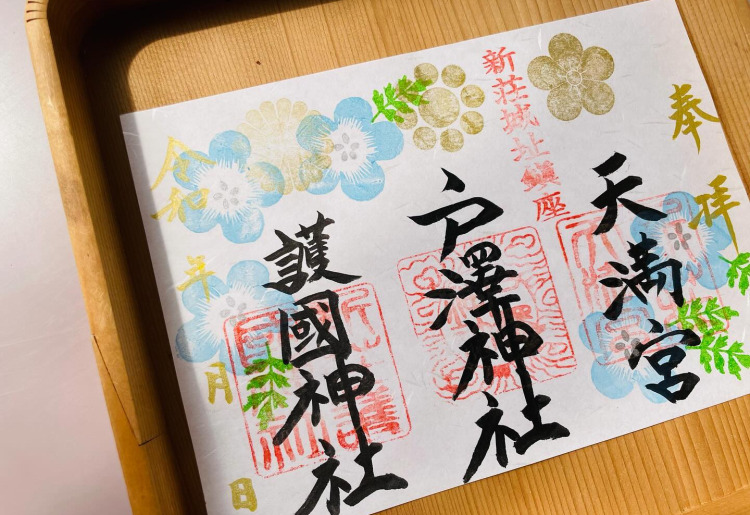 奉拝
新荘城址鎮座
天満宮
戸澤神社
護國神社
令和
年
月
日